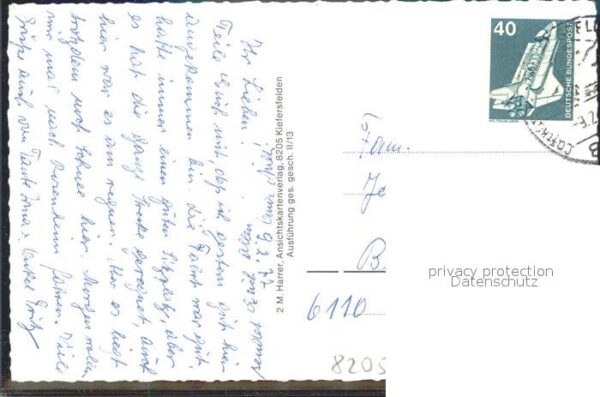 9. 2. 77
Ihr Lieben!
Teile Euch mit daß ich gestern gut hier
angekommen bin. Die Fahrt war gut,
hatte immer einen guten Sitzplatz, aber
es hat die ganze Strecke geregnet, auch
hier war es am regnen. Hier es liegt
trotzdem noch Schnee hier. Morgen wollen
wir mal nach Rosenheim fahren. Viele
Grüße auch von Tante Onkel
2 M. Harrer, Ansichtskartenverlag, 8205 Kiefersfelden
Ausführung ges. gesch. II/13
40
DEUTSCHE BUNDESPOST
Fam.
Je
B
6110
8205
privacy protection
Datenschutz